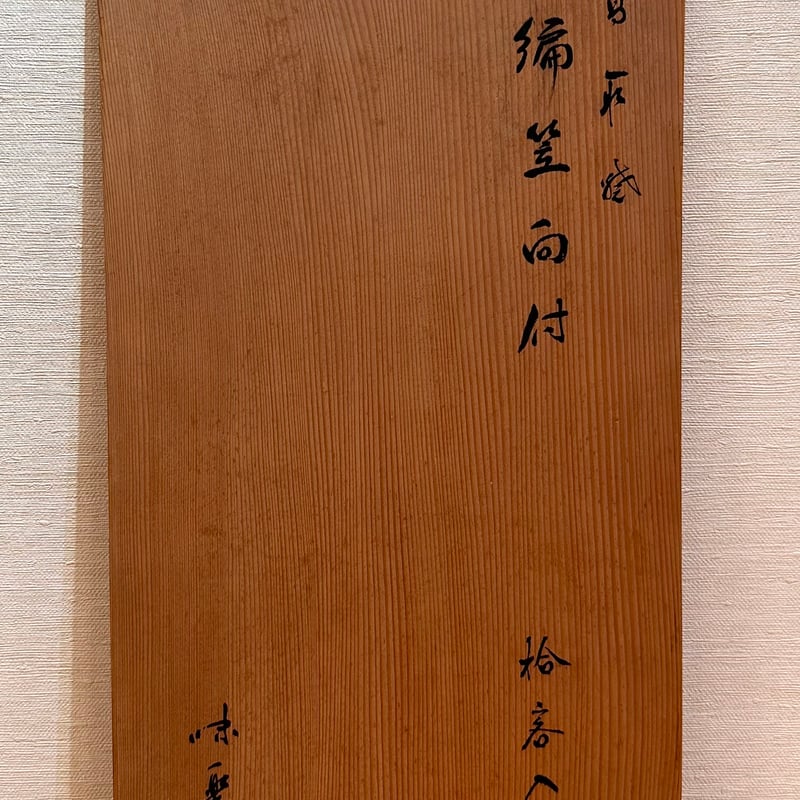 取
編笠向付
拾客入
味